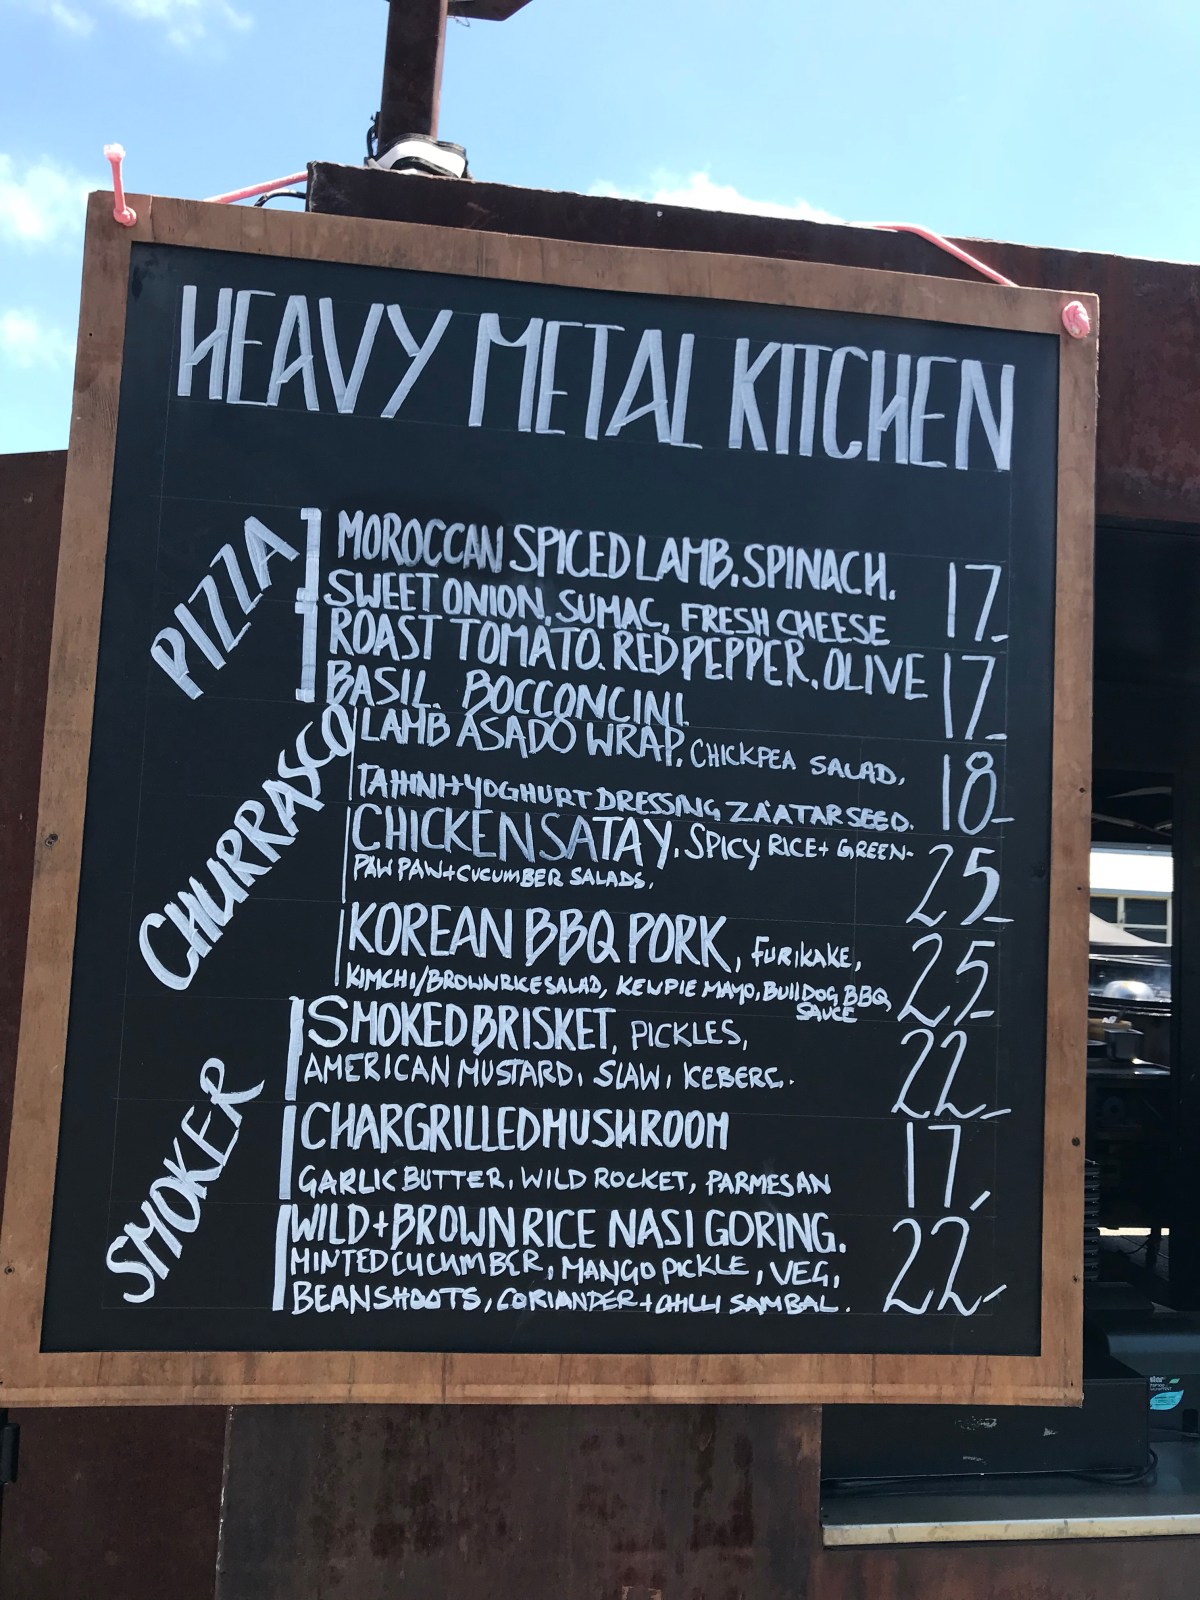 HEAVY METAL KITCHEN
PIZZA
MOROCCAN SPICED LAMB. SPINACH.
SWEET ONION, SUMAC, FRESH CHEESE 17-
ROAST TOMATO. RED PEPPER. OLIVE
BASIL. BOCCONCINI. 17-
CHURRASCO
LAMB ASADO WRAP, CHICKPEA SALAD,
TAHINI+YOGHURT DRESSING ZÁATAR SEED. 18-
CHICKEN SATAY, SPICY RICE+ GREEN-
PAW PAW+CUCUMBER SALADS, 25-
KOREAN BBQ PORK, FURIKAKE,
KIMCHI/BROWN RICE SALAD, KEWPIE MAYO, BULLDOG BBQ
SAUCE 25-
SMOKER
SMOKED BRISKET, PICKLES,
AMERICAN MUSTARD, SLAW, ICEBERG. 22-
CHARGRILLED MUSHROOM
GARLIC BUTTER, WILD ROCKET, PARMESAN 17-
WILD+BROWN RICE NASI GORING.
MINTED CUCUMBER, MANGO PICKLE, VEG,
BEANSHOOTS, CORIANDER+CHILLI SAMBAL. 22-
star